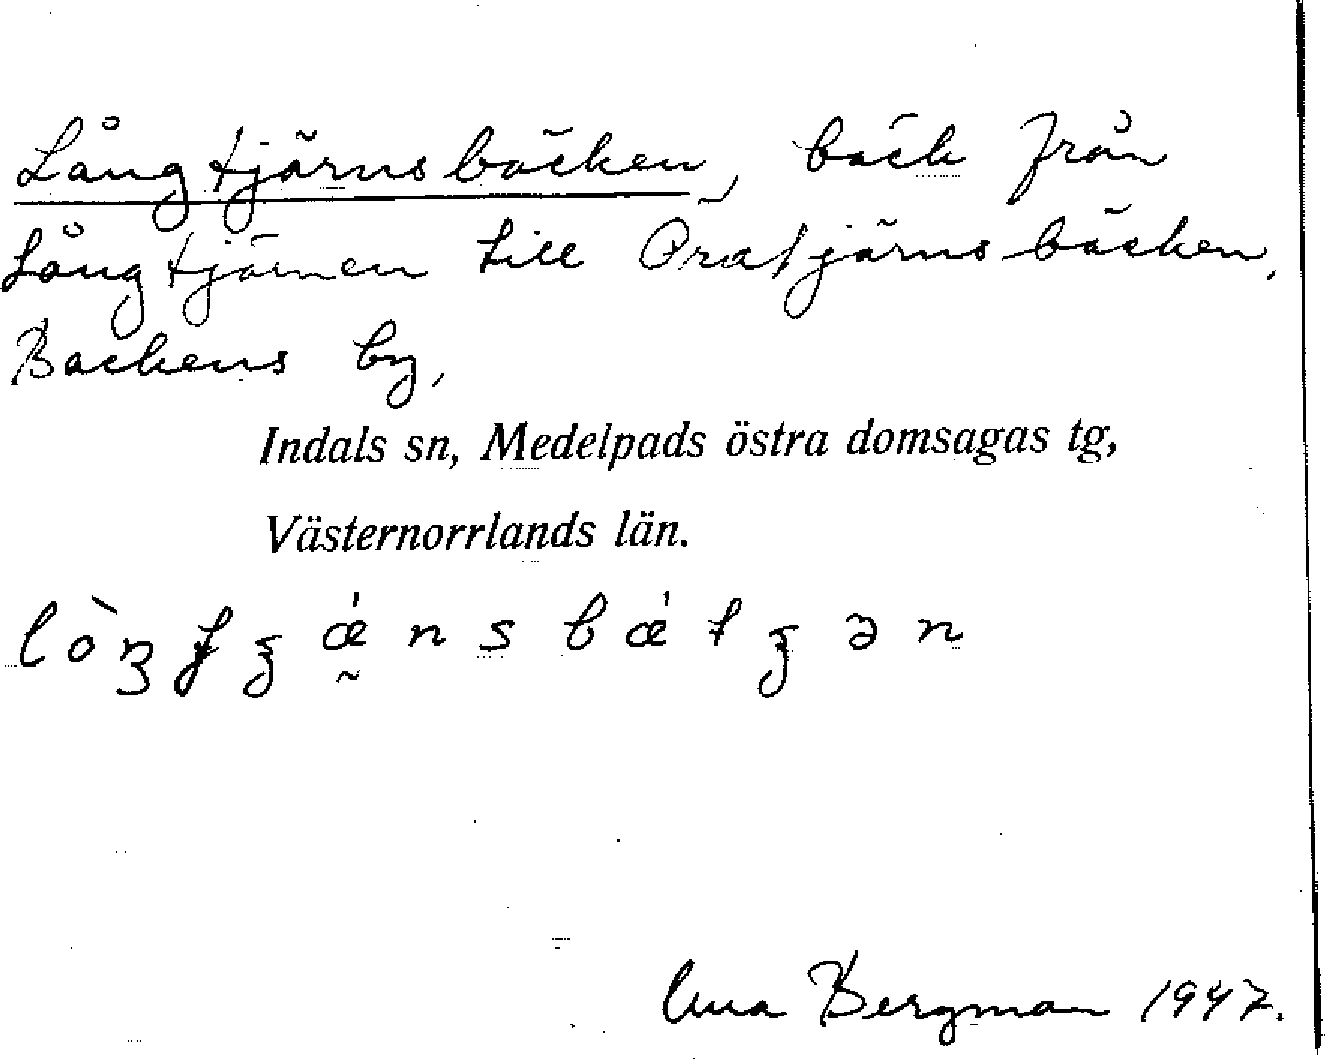 Långtjärnsbäcken, bäck från
Långtjärnen till Oratjärnsbäcken,
Backens by,
Indals sn, Medelpads östra domsagas tg,
Västernorrlands län.
Bergman 1947.